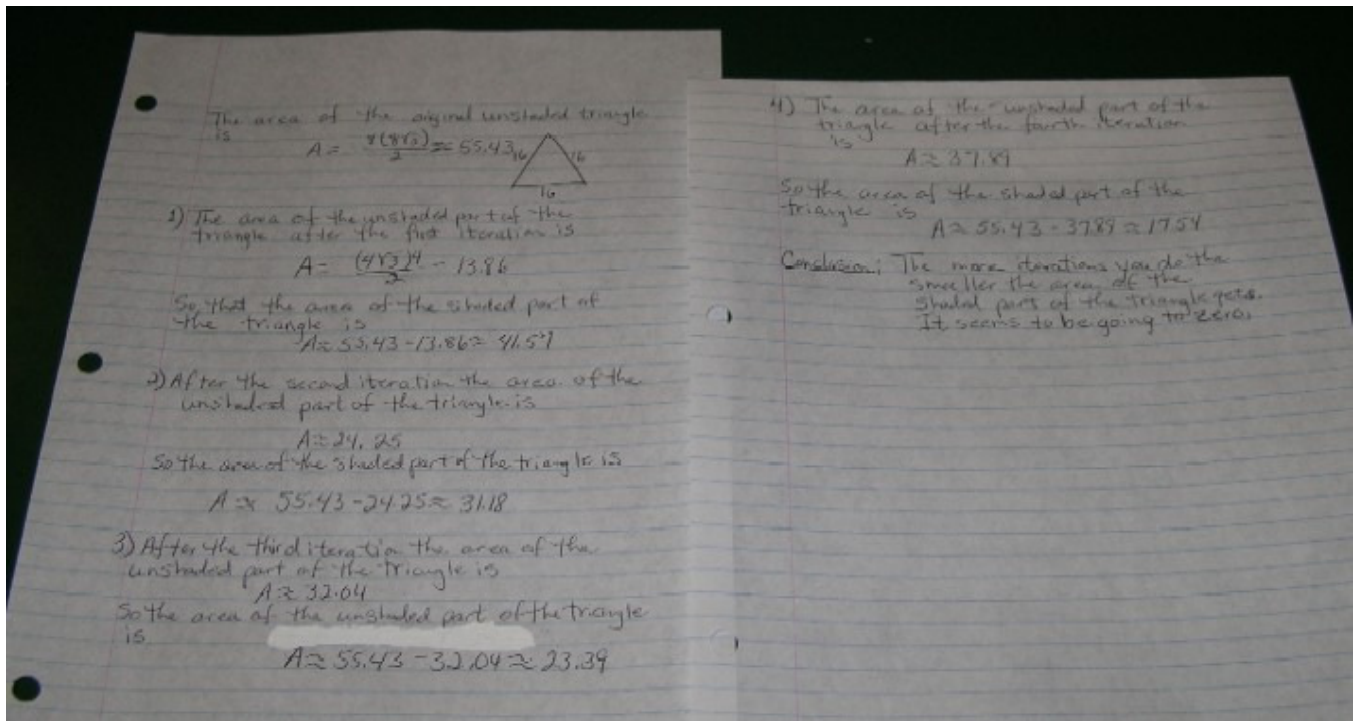 The area of the original unshaded triangle
is
A = 8(8√3)/2 ≈ 55.43
16
16
16
1) The area of the unshaded part of the
triangle after the first iteration is
A = (4√3)4/2 - 13.86
So that the area of the shaded part of
the triangle is
A≈ 55.43 - 13.86 ≈ 41.57
2) After the second iteration the area of the
unshaded part of the triangle is
A ≈ 24.25
So the area of the shaded part of the triangle is
A ≈ 55.43 - 24.25 ≈ 31.18
3) After the third iteration the area of the
unshaded part of the triangle is
A ≈ 32.04
So the area of the unshaded part of the triangle
is
A ≈ 55.43 - 32.04 ≈ 23.39
4) The area of the unshaded part of the
triangle after the fourth iteration
is
A ≈ 37.89
So the area of the shaded part of the
triangle is
A ≈ 55.43 - 37.89 ≈ 17.54
Conclusion: The more iterations you do the
smaller the area of the
shaded part of the triangle gets.
It seems to be going to zero.